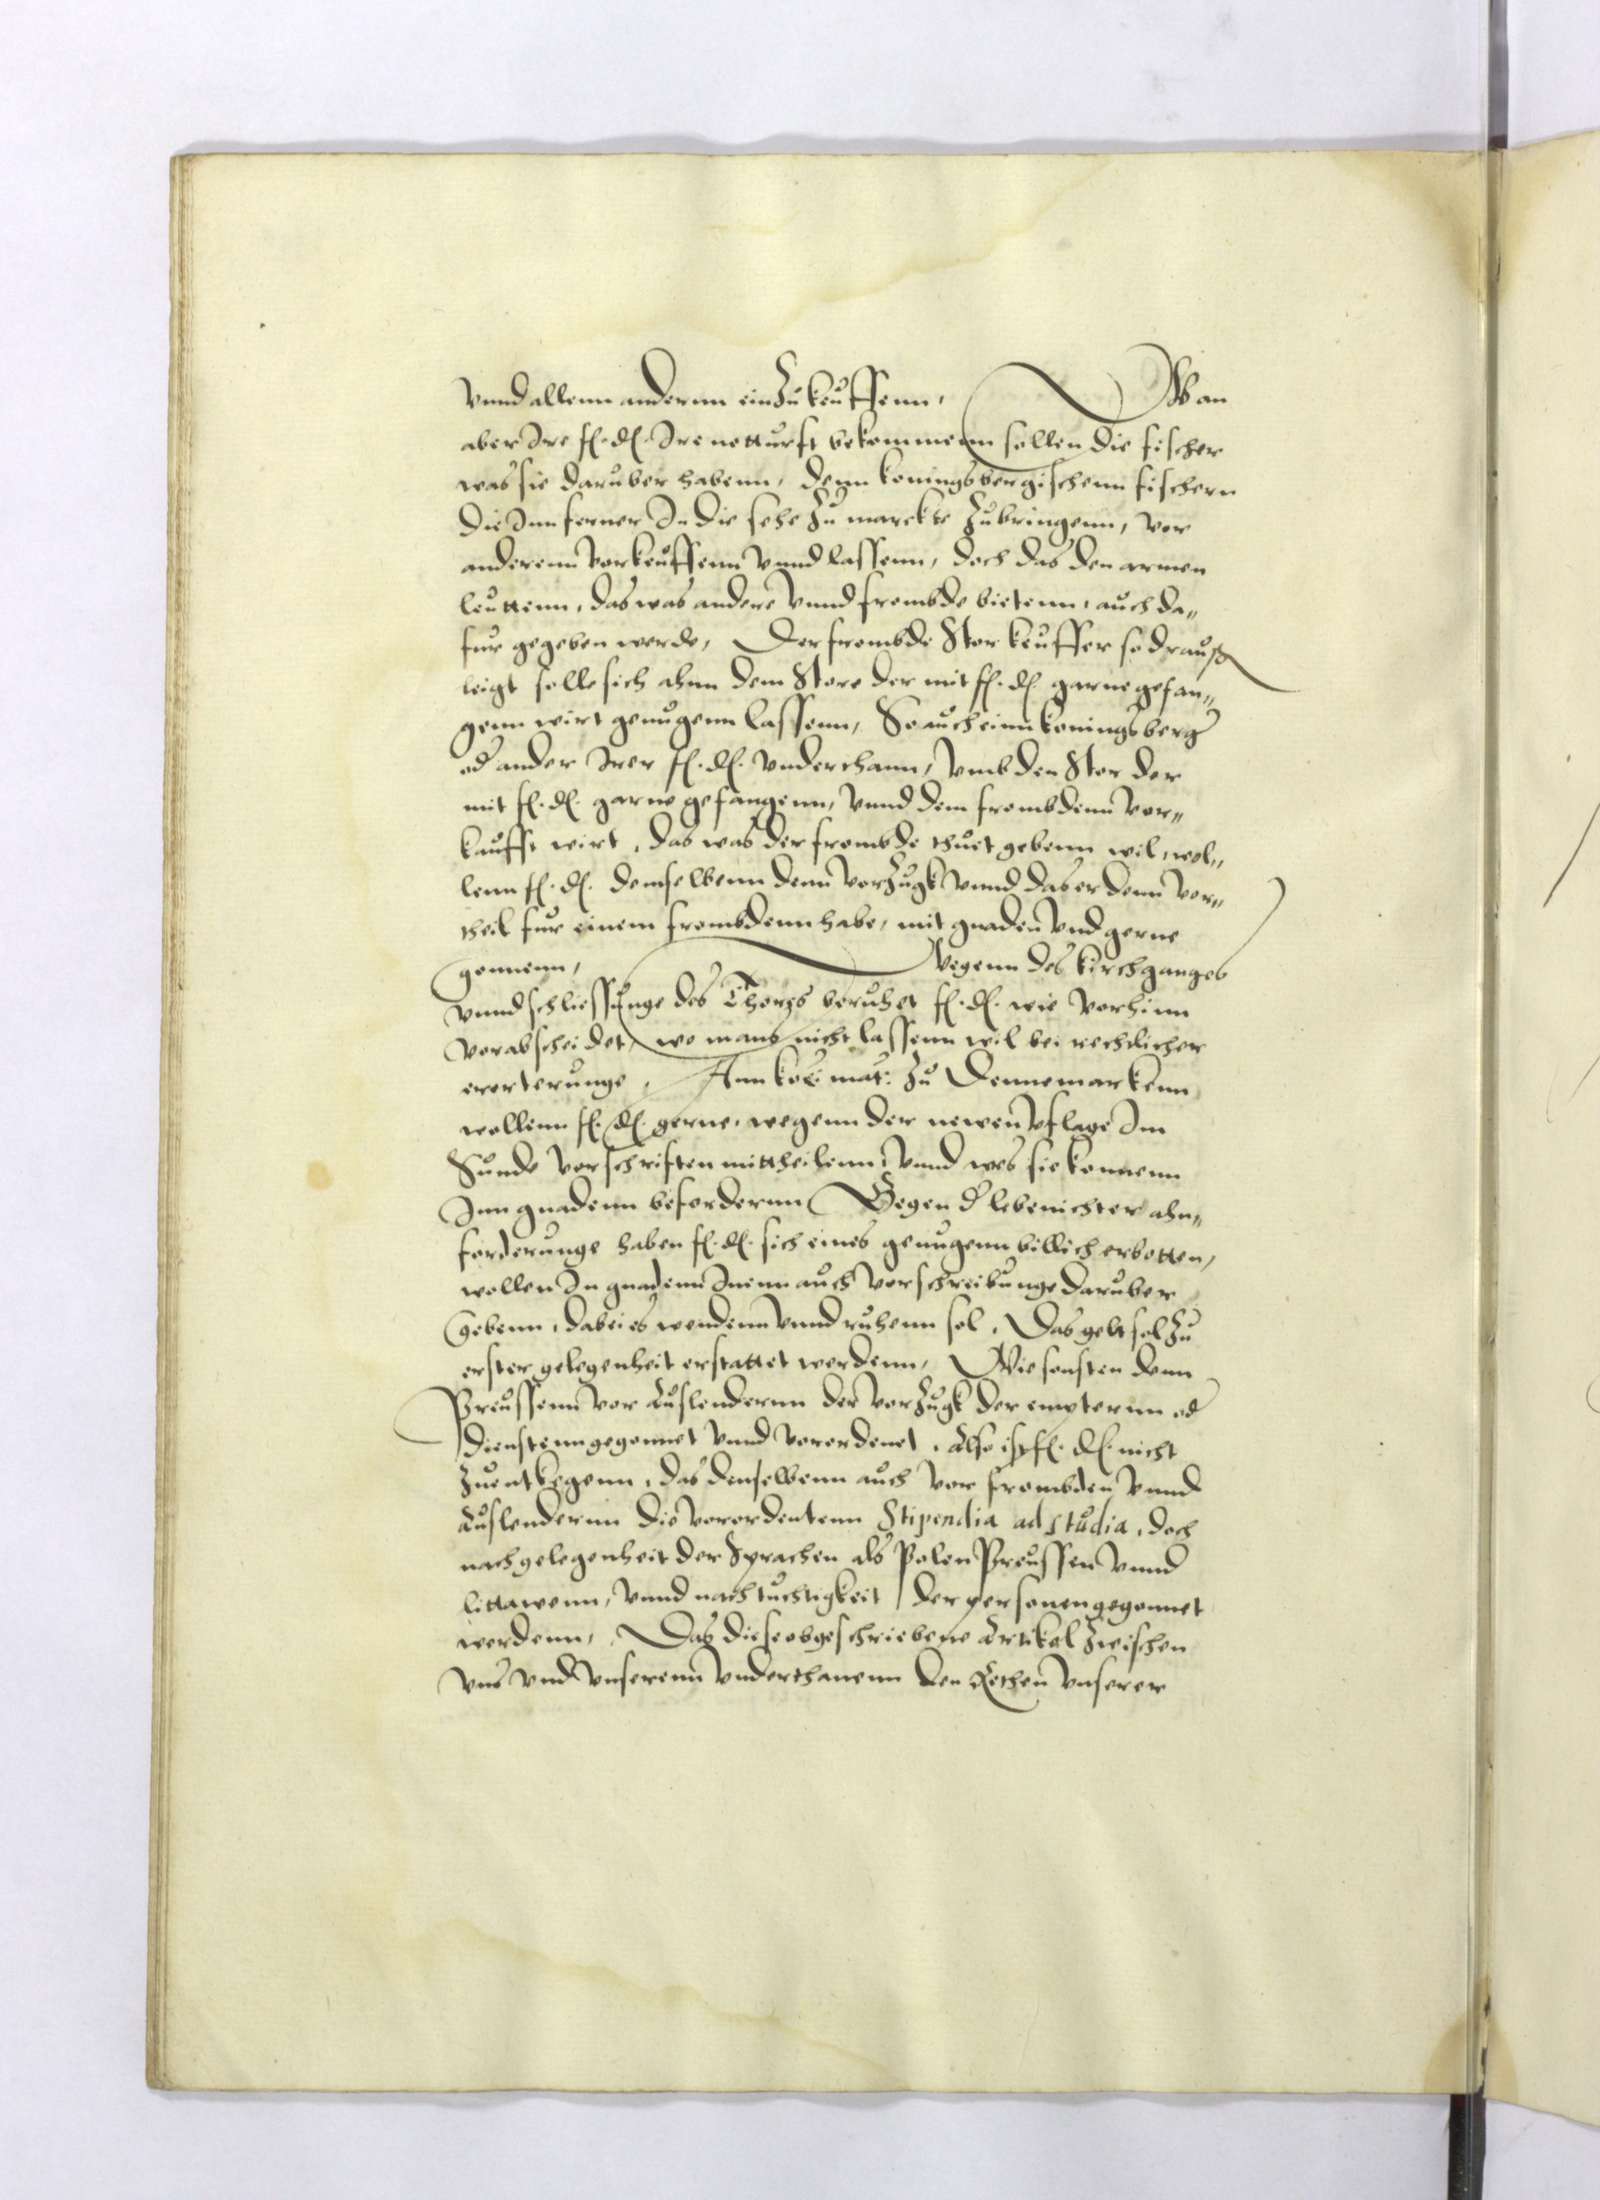 vnnd allenn anderenn einzukeuffenn, Wan
aber Jre fl. dl. Jre notturft bekommenn sollen die fischer
was sie daruber habenn, denn konigsbergischenn fischern
die Jnn ferner Jn die sehe zu marckte zubringenn, vor
anderenn vorkeuffenn vnnd lassenn, doch das den armen
leuttenn, das was andere vnnd frembde bietenn, auch da„
fur gegeben werde, Der frembde Stor keuffer so drauß
leigt solle sich ahnn dem Store der mit fl. dl. garne gefan„
genn wirt genugenn lassenn, So auch einn konigsberg
od ander Jrer fl. dl. vnderthann, vmb den Stor der
mit fl. dl. garne gefangenn, vnnd dem frembdenn vor„
kaufft wirt, das was der frembde thuet gebenn wil, wol„
lenn fl. dl. demselbenn denn vorzugk vnnd das er denn vor„
theil fur einem frembdenn habe, mit gnaden vnd gerne
gonnenn, Wegenn des kirchganges
vnnd schliessunge des Thores beruhet fl. dl. wie vorhinn
vorabscheidet, wo mans nicht lassenn wil bei rechtlicher
ererterunge, Ann ko: mat: zu Dennemarkenn
wollenn fl. dl. gerne, wegenn der newen vflage Im
Sunde vorschriften mittheilenn, vnnd wes sie konnenn
Jnn gnadenn beforderenn Gegen d lebenichter ahn„
forderunge haben fl. dl. sich eines genugenn billich erbotten,
wollen Jn gnadenn Jnenn auch vorschreibunge daruber
gebenn, dabei es wendenn vnnd ruhenn sol, Das gelt sol zu
erster gelegenheit erstattet werdenn, Wie sonsten denn
Preussenn vor Auslenderenn der vorzugk der empterenn od
dienstenn gegonnet vnnd vorordenet, Also ist fl. dl. nicht
zuentkegenn, das denselbenn auch vor frembden vnnd
Auslenderenn die vorordentenn Stipendia ad studia, doch
nach gelegenheit der Sprachen als Polen Preussen vnnd
littawenn, vnnd nach tuchtigkeit der personen gegonnet
werdenn, Das diese obgeschriebene Artikel zwischen
vns vnd vnserenn vnderthanenn den Rethen vnserer